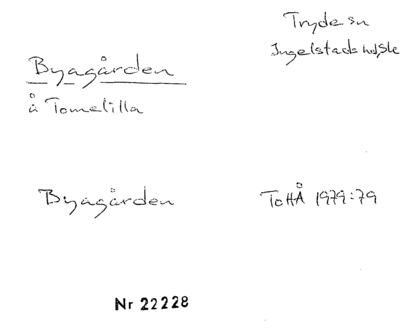 Tryde sn
Ingelstads hd, Sk
Byagården
å Tomelilla
Byagården ToHÅ 1979:79
Nr 22228